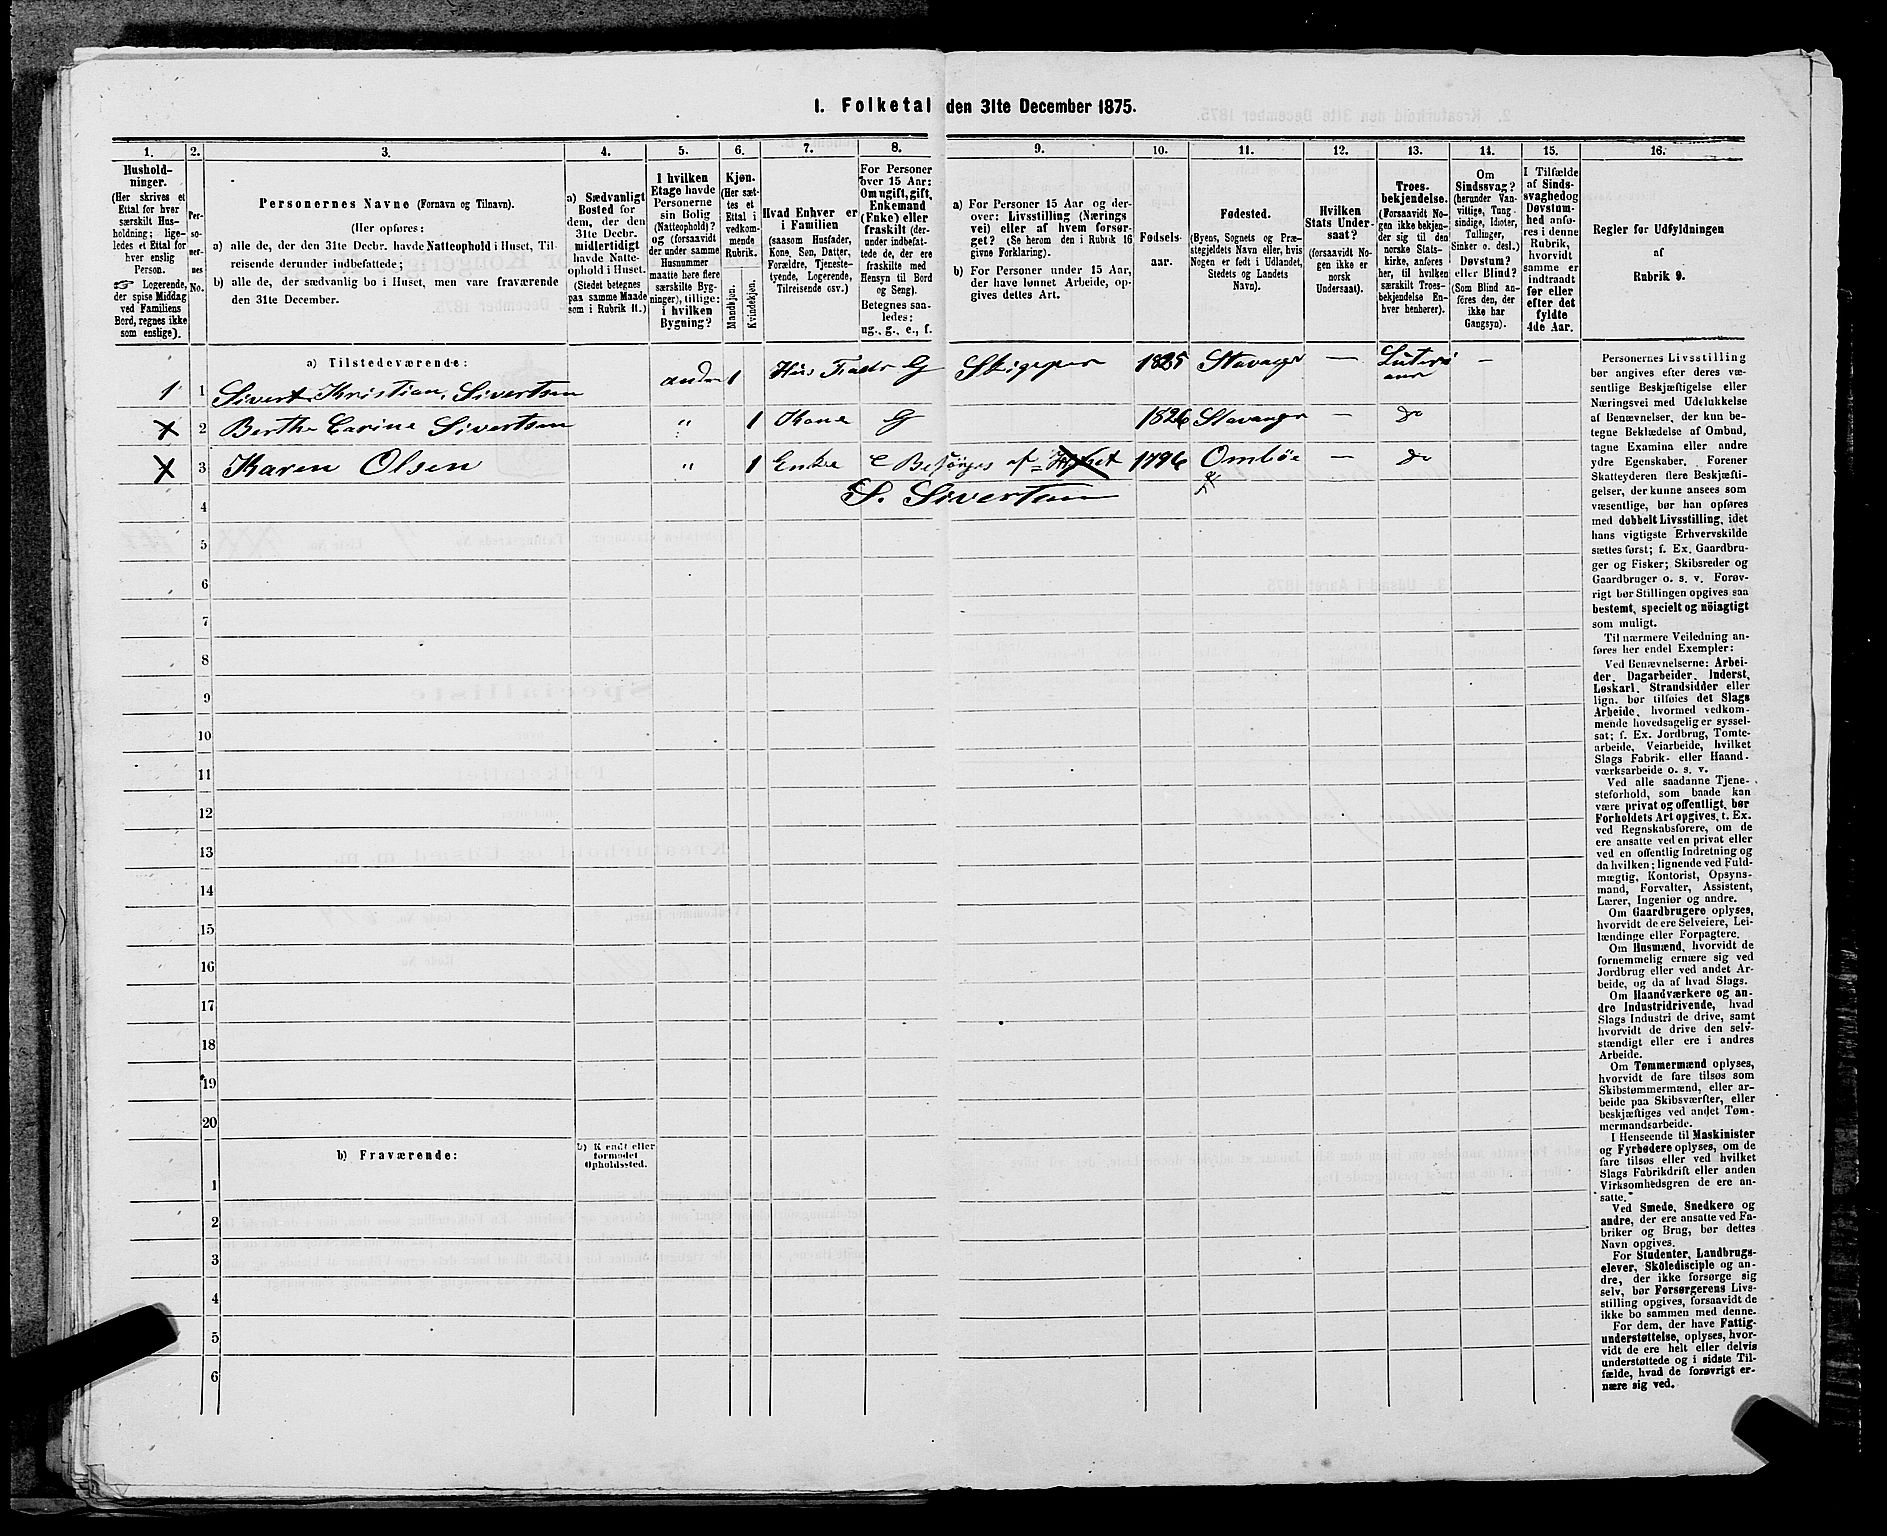 I. Folketal den 31te December 1875.
1. 2. 3. 4. 5. 6. 7. 8. 9. 10. 11. 12. 13. 14. 15. 16.
Hushold-
ninger.
(Her skrives et
Ettal for hver
særskilt Hus-
holdning; lige-
ledes et Ettal for
hver enslig
Person.
☞ Logerende,
der spise Middag
ved Familiens
Bord, regnes ikke
som enslige).
Per-
so-
ner-
nes
No.
Personernes Navne (Fornavn og Tilnavn).
(Her opføres:
a) alle de, der den 31te Decbr. havde Natteophold i Huset, Til-
reisende derunder indbefattede;
b) alle de, der sædvanlig bo i Huset, men vare fraværende
den 31te December.
a) Sædvanligt
Bosted for
dem, der den
31te Decbr.
midlertidigt
havde Natte-
ophold i Huset.
(Stedet betegnes
paa samme Maade
som i Rubrik 11.)
I hvilken
Etage havde
Personerne
sin Bolig
(Natteophold)?
og (forsaavidt
der under samme
Husnummer
maatte høre flere
særskilte Byg-
ninger), tillige:
i hvilken
Bygning?
Kjøn.
(Her sæt-
tes et
Ettal i
vedkom-
mende
Rubrik.
Mandkjøn.
Kvindekjøn.
Hvad Enhver er
i Familien
(saasom Husfader,
Kone, Søn, Datter,
Forældre, Tjeneste-
tyende, Logerende,
Tilreisende osv.)
For Personer
over 15 Aar:
Om ugift, gift,
Enkemand
(Enke) eller
fraskilt (der-
under indbefat-
tede de, der ere
fraskilte med
Hensyn til Bord
og Seng).
Betegnes saa-
ledes:
ug., g., e., f.
a) For Personer 15 Aar og der-
over: Livsstilling (Nærings
vei) eller af hvem forsør-
get? (Se herom den i Rubrik 16
givne Forklaring).
b) For Personer under 15 Aar,
der have lønnet Arbeide, op-
gives dettes Art.
Fødsels-
aar.
Fødested.
(Byens, Sognets og Præ-
stegjeldets Navn eller, hvis
Nogen er født i Udlandet,
Stedets og Landets
Navn).
Hvilken
Stats Under-
saat?
(forsaavidt No-
gen ikke er
norsk
Undersaat).
Troes-
bekjendelse.
(Forsaavidt No-
gen ikke bekjen-
der sig til den
norske Stats-
kirke, anføres
her, til hvilken
særskilt Troes-
bekjendelse En-
hver henhører).
Om
Sindssvag?
(herunder Van-
vittige, Tung-
sindige, Idioter,
Tullinger,
Sinker o. desl.)
Døvstum?
eller Blind?
(Som Blind an-
føres den, der
ikke har
Gangsyn).
I Tilfælde
af Sinds-
svaghed og
Døvstum-
hed anfø-
res i denne
Rubrik,
hvorvidt
samme er
indtraadt
før eller
efter det
fyldte
4de Aar.
Regler for Udfyldningen
af
Rubrik 9.
a) Tilstedeværende:
1 1 Sivert Kristian Sivertsen anden 1 Hus Fader G Skipper 1825 Stavanger — Luteri
aner —
2 Berthe Carine Sivertsen " 1 Kone G 1826 Stavanger — do
3 Karen Olsen " 1 Enke e Besörges af 1796 Omböe — do
S. Sivertsen
4
5
6
7
8
9
10
11
12
13
14
15
16
17
18
19
20
b) Fraværende:
b) Kjendt eller
formodet
Opholdssted.
1
2
3
4
5
6
Personernes Livsstilling
bør angives efter deres væ-
sentlige Beskjæftigelse eller
Næringsvei med Udelukkelse
af Benævnelser, der kun be-
tegne Beklædelse af Ombud,
tagne Examina eller andre
ydre Egenskaber. Forener
Skatteyderen flere Beskjæfti-
gelser, der kunne ansees som
væsentlige, bør han opføres
med dobbelt Livsstilling, idet
hans vigtigste Erhvervskilde
sættes først; f. Ex. Gaardbru-
ger og Fisker; Skibsreder og
Gaardbruger o. s. v. Forøv-
rigt bør Stillingen opgives saa
bestemt, specielt og nöiagtigt
som muligt.
Til nærmere Veiledning an-
føres her endel Exempler:
Ved Benævnelserne: Arbei-
der, Dagarbeider, Inderst,
Løskarl, Strandsidder eller
lign. bør tilføies det Slags
Arbeide, hvormed vedkom-
mende hovedsagelig er syssel-
sat; f. Ex. Jordbrug, Tomte-
arbeide, Veiarbeide, hvilket
Slags Fabrik- eller Haand-
værksarbeide o. s. v.
Ved alle saadanne Tjene-
steforhold, som baade kan
være privat og offentligt, bør
Forholdets Art opgives, t. Ex.
ved Regnskabsførere, om de
ere ansatte ved en privat eller
ved en offentlig Indretning og
da hvilken; lignende ved Fuld-
mægtig, Kontorist, Opsyns-
mand, Forvalter, Assistent,
Lærer, Ingeniør og andre.
Om Gaardbrugere oplyses,
hvorvidt de ere Selveiere, Lei-
lændinge eller Forpagtere.
Om Husmænd, hvorvidt de
fornemmelig ernære sig ved
Jordbrug eller ved andet Ar-
beide, og da af hvad Slags.
Om Haandværkere og an-
dre Industridrivende, hvad
Slags Industri de drive, samt
hvorvidt de drive den selv-
stændigt eller ere i andres
Arbeide.
Om Tømmermænd oplyses,
hvorvidt de fare tilsøs som
Skibstømmermænd, eller ar-
beide paa Skibsværfter, eller
beskjæftiges ved andet Tøm-
mermandsarbeide.
I Henseende til Maskinister
og Fyrbødere oplyses, om de
fare tilsøs eller ved hvilket
Slags Fabrikdrift eller anden
Virksomhedsgren de ere an-
satte.
Ved Smede, Snedkere og
andre, der ere ansatte ved Fa-
briker og Brug, bør dettes
Navn opgives.
For Studenter, Landbrugs-
elever, Skoledisciple og an-
dre, der ikke forsørge sig
selv, bør Forsørgerens Livs-
stilling opgives, forsaavidt de
ikke bo sammen med denne.
For dem, der have Fattig-
understøttelse, oplyses, hvor-
vidt de ere helt eller delvis
understøttede og i sidste Til-
fælde, hvad de forøvrigt er-
nære sig ved.